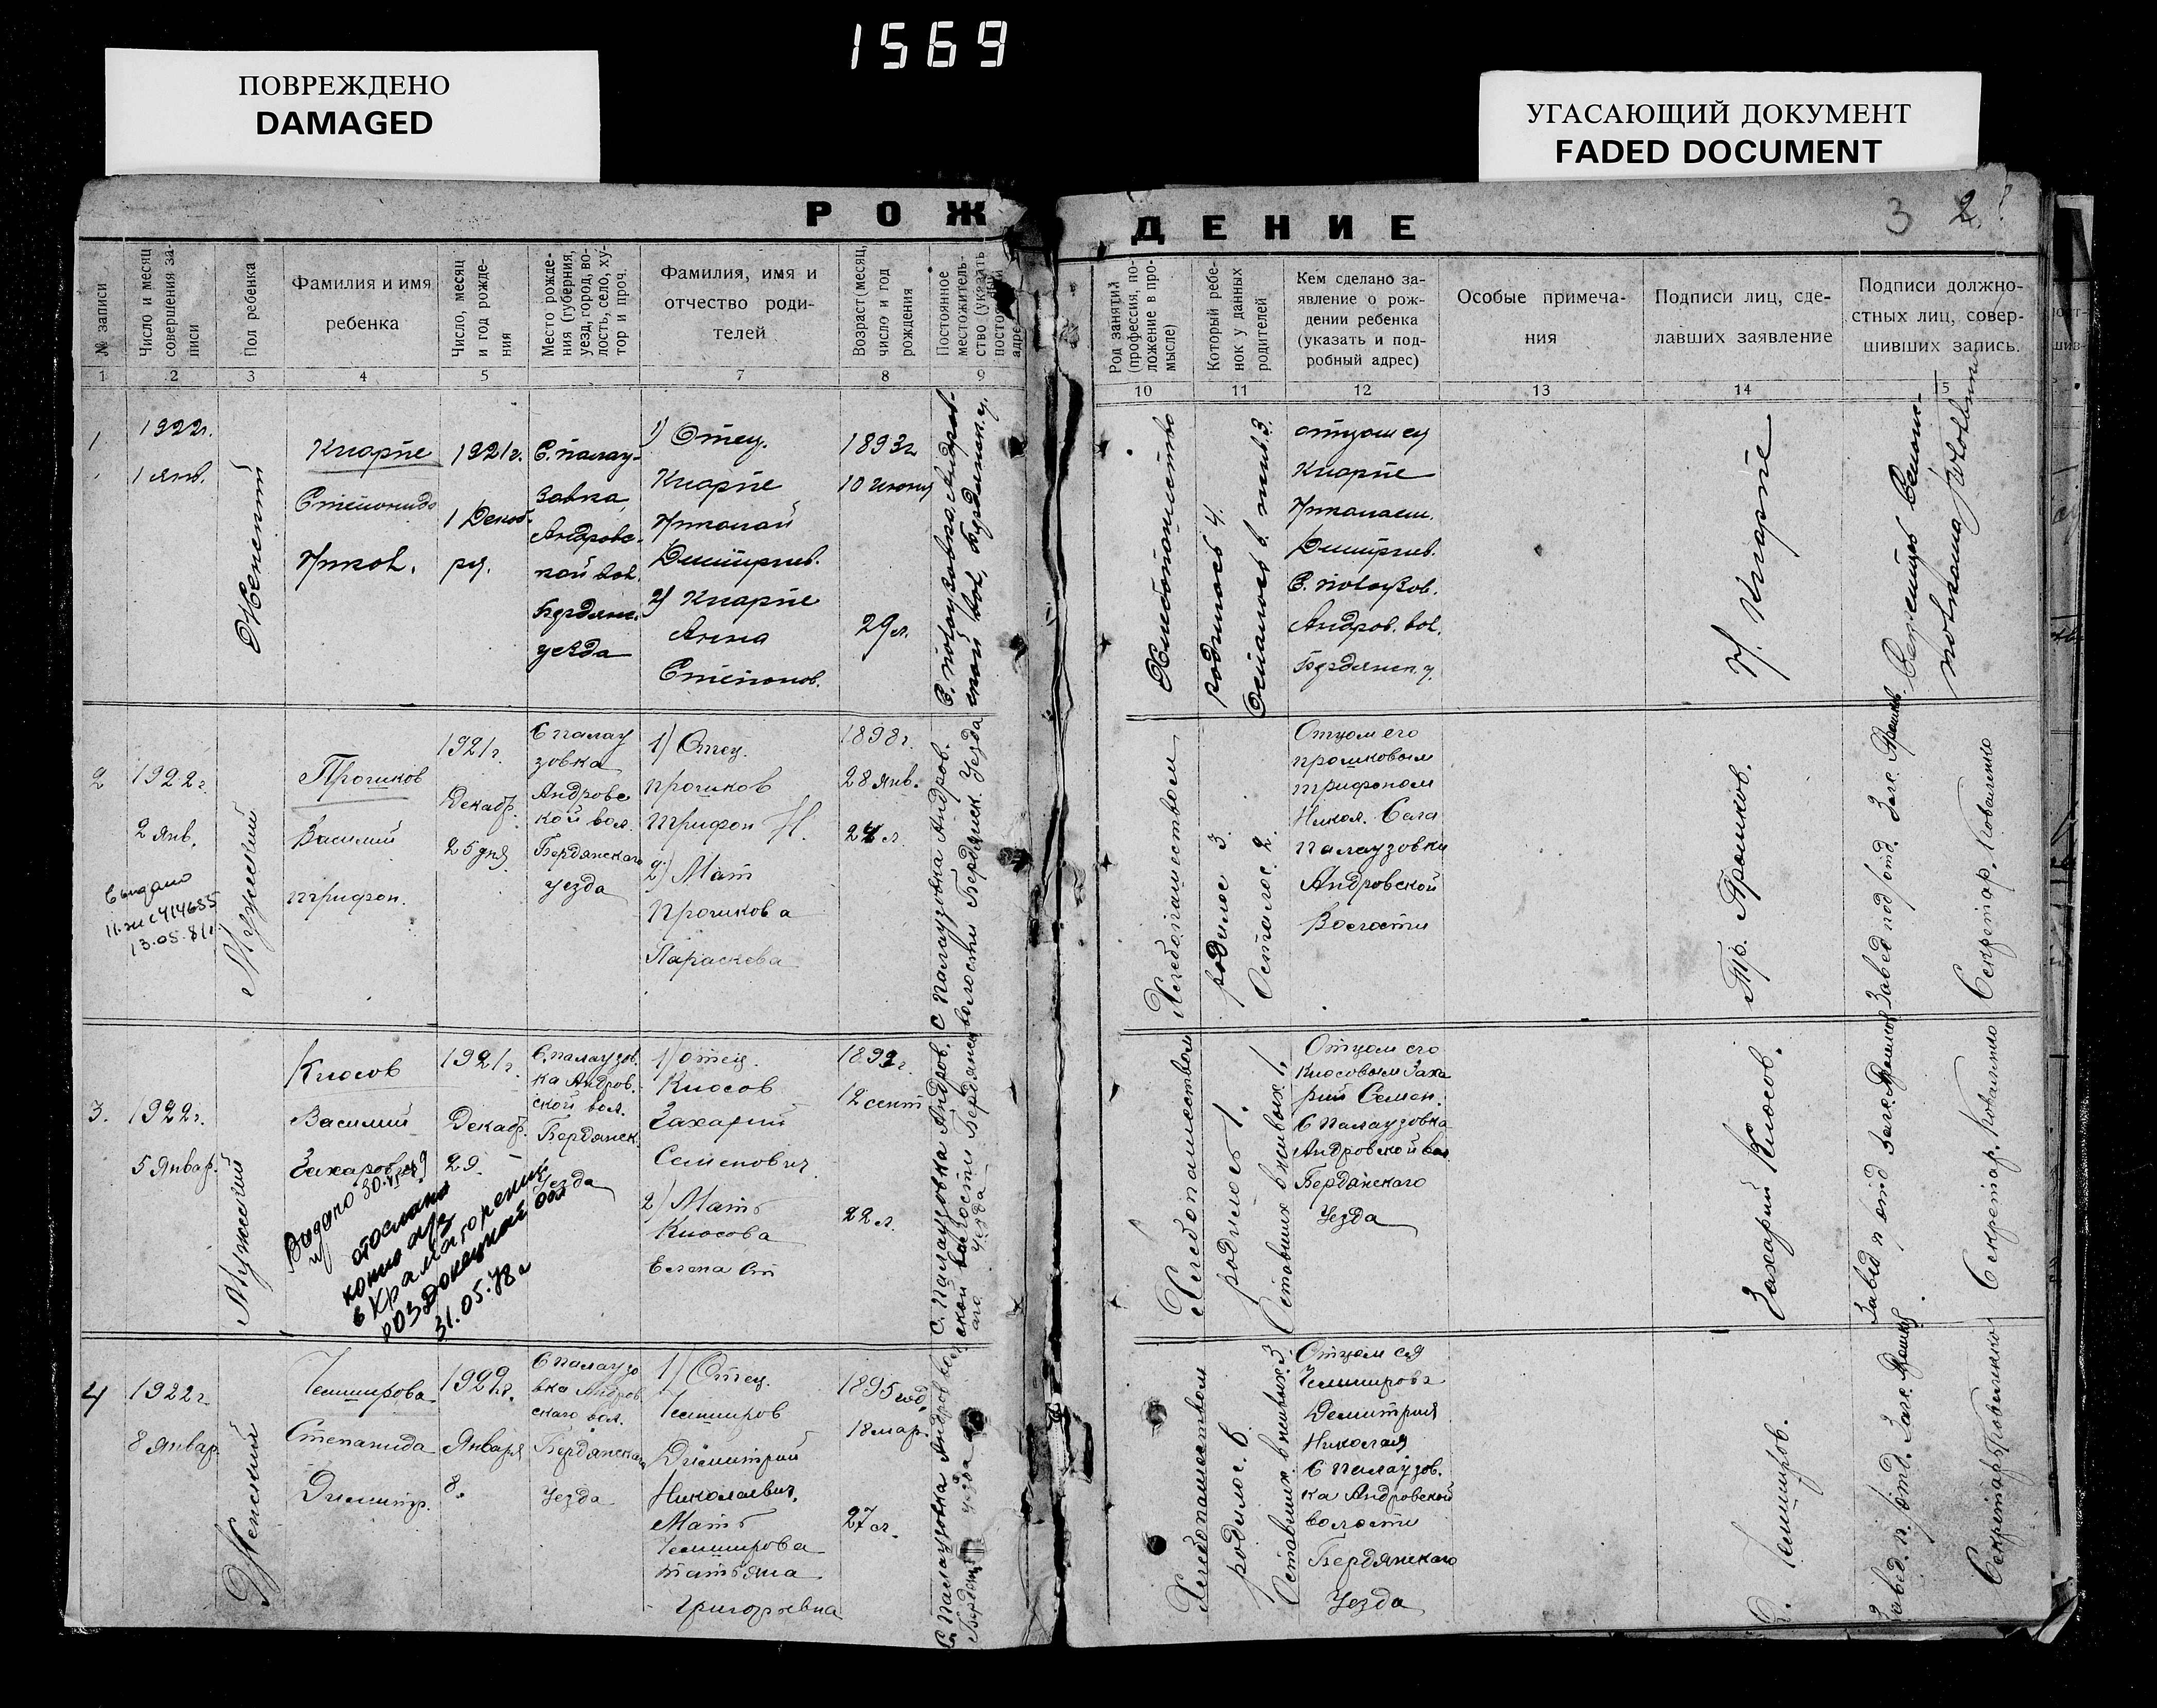 1569
ПОВРЕЖДЕНО
DAMAGED
УГАСАЮЩИЙ ДОКУМЕНТ
FADED DOCUMENT
РОЖДЕНИЕ
3 2
№ записи
Число и месяц
совершения за-
писи
Пол ребенка
Фамилия и имя
ребенка
Число, месяц
и год рожде-
ния
Место рожде-
ния (губерния,
уезд, город, во-
лость, село, ху-
тор и проч.
Фамилия, имя и
отчество роди-
телей
Возраст (месяц,
число и год
рождения
Постоянное
местожитель-
ство (указать
адре
Род занятий
(профессия, по-
ложение в про-
мысле)
Который ребе-
нок у данных
родителей
Кем сделано за-
явление о рож-
дении ребенка
(указать и под-
робный адрес)
Особые примеча-
ния
Подписи лиц, сде-
лавших заявление
Подписи должно-
стных лиц, совер-
шивших запись.
1 2 3 4 5 6 7 8 9
10 11 12 13 14 15
1
1922г.
1 янв.
Женский
1921г.
1 Декаб-
ря.
С. Палау-
зовка,
Андровс-
кой вол.
Бердянс.
уезда
1) Отец.
Дмитриев.
2)
Анна
Степанов.
1893г
10 июня
29 л.
родилось 4.
Осталось в жив. 3.
отцом ея
Дмитриев.
Андров. вол.
Бердянск. у.
2
1922г.
2 янв.
Выдано
13.05.81г.
Мужской
Прошков
Василий
Трифон.
1921г.
Декабр.
25 дня
С Палау
зовка
Андровс
кой вол.
Бердянскаго
уезда
1) Отец.
Прошков
Трифон Н.
2) Мат
Прошкова
Параскева
1898г.
28 янв.
24 л.
С Палаузовка Андров.
волости Бердянск. уезда
Хлебопашеством
родилос 3.
Осталос 2.
Отцом его
Прошковым
Трифоном
Никол. Села
Палаузовки
Андровской
Волости
Тр. Прошков.
Завед под/отд. Загс. Прошков
Секретар. Коваленко
3.
1922г.
5 Январ.
Мужской
Кюсов
Василий
Захаров
Выдано 30.
отослана
копия а/з
в Краматорский
РОЗ Донецкой обл
31.05.78г
1921г.
Декабр.
29.
С. Палаузов.
ка Андров.
ской вол.
Бердянск.
уезда
1) отец.
Кюсов
Захарий
Семенович
2) Мать
Кюсова
Елена Ст
1899г.
12 сент
22 л.
С. Палаузовка Андров.
ской волости Бердянск
аго уезда
Хлебопашеством
родилос 1.
Оставших в живых 1.
Отцом его
Кюсовым Заха
рий Семен.
С Палаузовка
Андровской вол
Бердянскаго
Уезда
Захарий Кюсов.
Завед п/отд Загс. Прошков
Секретар. Коваленко
4
1922г.
8 Январ.
Женский
Чемширова
Степанида
Димитр.
1922г.
Января
8.
С Палаузо
вка Андров
скаго вол.
Бердянскаго
Уезда
1) Отец.
Чемширов
Димитрий
Николаевич.
Мать
Чемширова
татьяна
Григорьевна
1895 год.
18 мар.
27 л.
С. Палаузовка
уезда
Хлебопашеством
родилос. 6
Оставших. в живых. 3
Отцом ея
Чемширова
Демитрия
Николая
С Палаузов.
ка Андровской
волости
Бердянскаго
Уезда
Чемширов.
Завед. п./отд. Загс. Прошков
Секретар Коваленко